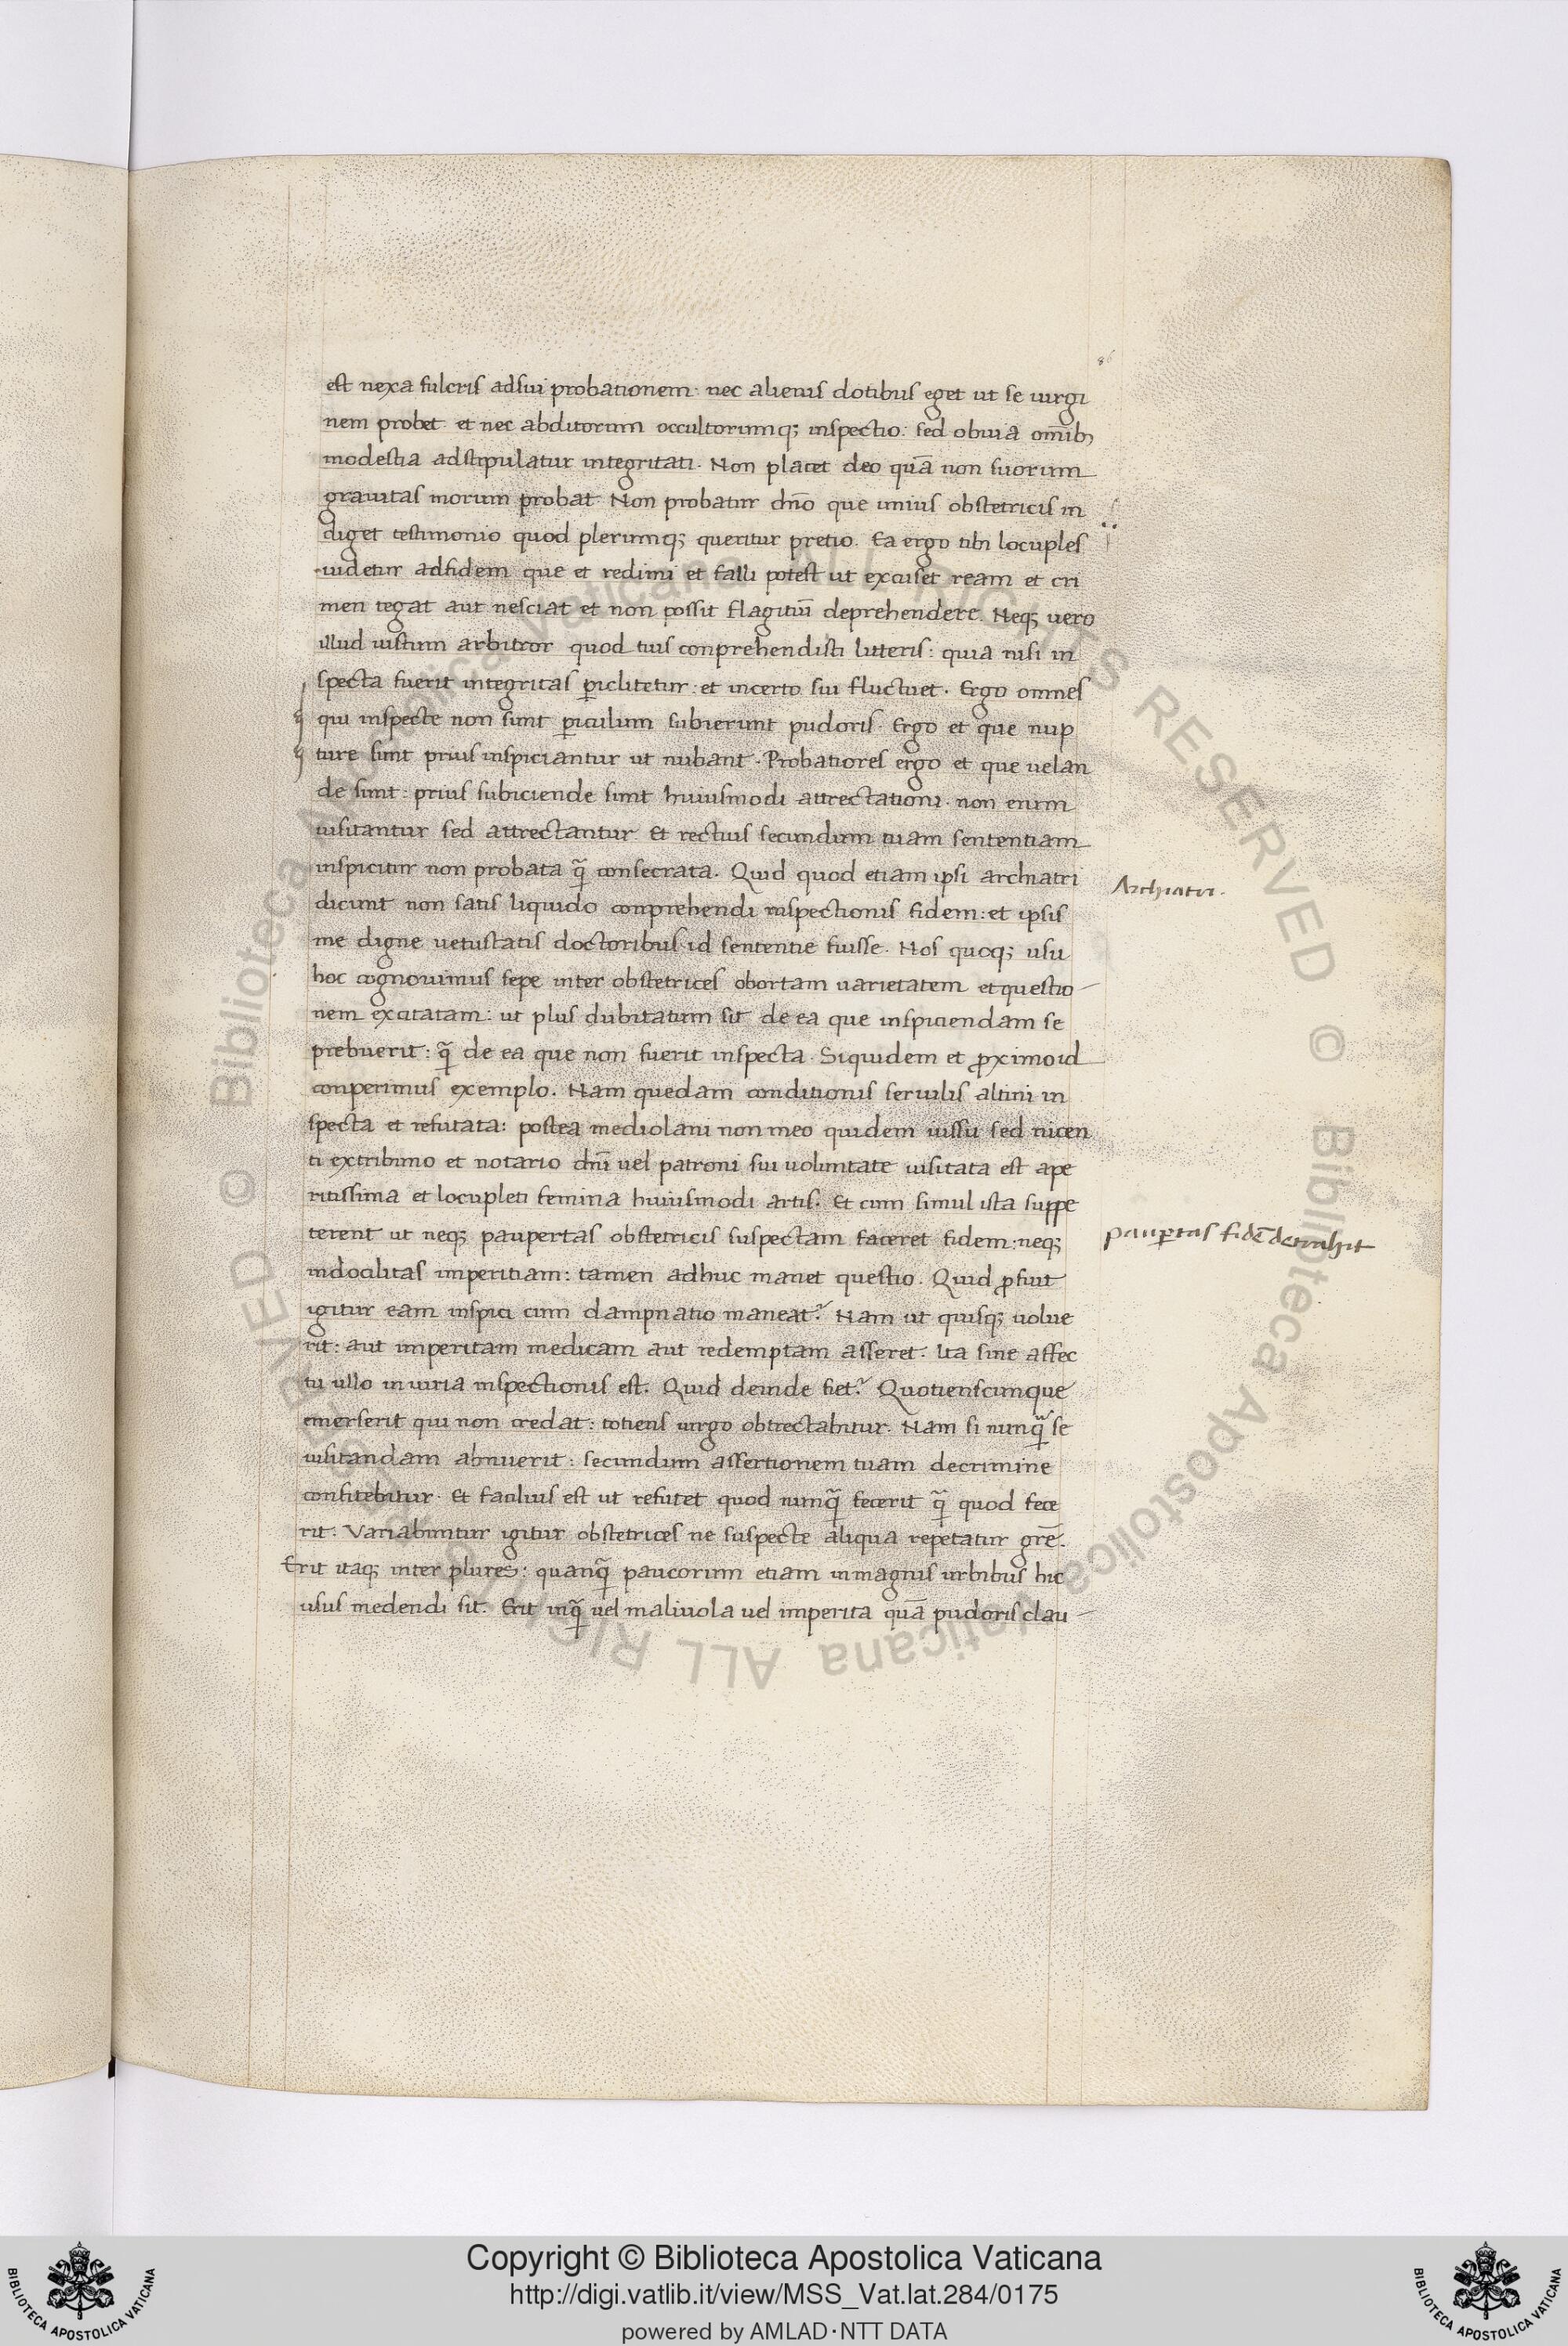 86
est nexa fulcris ad sui probationem· nec alienis dotibus eget ut se uirgi
nem probet· et nec abditorum occultorumq; inspectio: sed obuia om̄ib;
modestia adstipulatur integritati· Non placet deo quā non suorum
grauitas morum probat· Non probatur dn̄o que unius obstetricis in
diget testimonio quod plerumq; queritur pretio. Ea ergo tibi locuples
uidetur ad fidem que et redimi et falli potest ut excuset ream et cri
men tegat aut nesciat et non possit flagitiū deprehendere. Neq; uero
illud iustum arbitror quod tuis conprehendisti litteris: quia nisi in
specta fuerit integritas ꝑiclitetur: et incerto sui fluctuet· Ergo omnes
qui inspecte non sunt ꝑiculum subierunt pudoris· Ergo et que nup
ture sunt prius inspiciantur ut nubant· Probatiores ergo et que uelan
de sunt: prius subiciende sunt huiusmodi attrectationi· non enim
uisitantur sed attrectantur· Et rectius secundum tuam sententiam
inspicitur non probata q̄ consecrata. Quid quod etiam ipsi archiatri
Archiatri.
dicunt non satis liquido conprehendi inspectionis fidem: et ipsis
me digne uetustatis doctoribus id sententie fuisse. Nos quoq; usu
hoc cognouimus sepe inter obstetrices obortam uarietatem et questio
nem excitatam: ut plus dubitatum sit de ea que inspiciendam se
prebuerit: q̄ de ea que non fuerit inspecta· Siquidem et ꝓximo id
conperimus exemplo. Nam quedam conditionis seruilis altini in
specta et refutata: postea mediolani non meo quidem iussu sed nicen
ti extribuno et notario dn̄i uel patroni sui uoluntate uisitata est ape
ritissima et locupleti femina huiusmodi artis. Et cum simul ista suppe
terent ut neq; paupertas obstetricis suspectam faceret fidem: neq;
pauꝑtas fidē detrahit
indocilitas imperitiam: tamen adhuc manet questio. Quid ꝓfuit
igitur eam inspici cum dampnatio maneat? Nam ut quisq; uolue
rit: aut imperitam medicam aut redemptam asseret. Ita sine affec
tu ullo iniuria inspectionis est. Quid deinde fiet? Quotienscunque
emerserit qui non credat: totiens uirgo obtrectabitur. Nam si nunq̄ se
uisitandam abnuerit: secundum assertionem tuam decrimine
confitebitur· Et facilius est ut refutet quod nunq̄ fecerit q̄ quod fece
rit: Variabuntur igitur obstetrices ne suspecte aliqua repetatur gr̄e.
Erit itaq; inter plures: quanq̄ paucorum etiam in magnis urbibus hic
usus medendi sit. Erit inq̄ uel maliuola uel imperita quā pudoris clau
© Biblioteca Apostolica Vaticana ALL RIGHTS RESERVED © Biblioteca Apostolica Vaticana ALL RIGHTS RESERVED
Copyright © Biblioteca Apostolica Vaticana
http://digi.vatlib.it/view/MSS_Vat.lat.284/0175
powered by AMLAD·NTT DATA
BIBLIOTECA APOSTOLICA VATICANA
BIBLIOTECA APOSTOLICA VATICANA